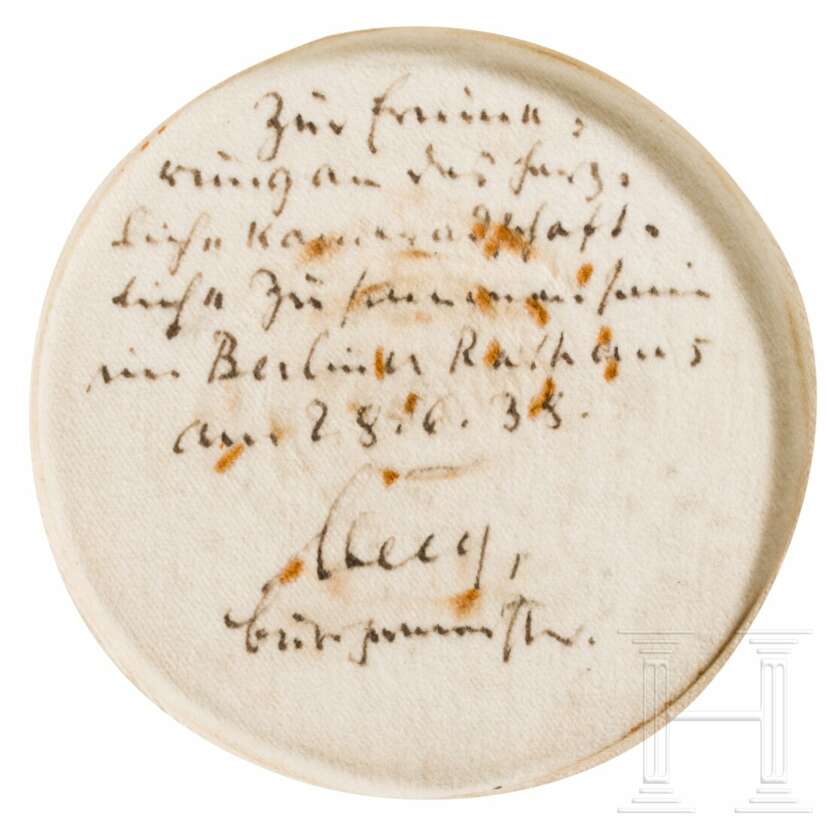 Zur Erinne-
rung an das herz-
liche kameradschaft-
liche Zusammensein
im Berliner Rathaus
am 28.6.38.
Bürgermeister.
H